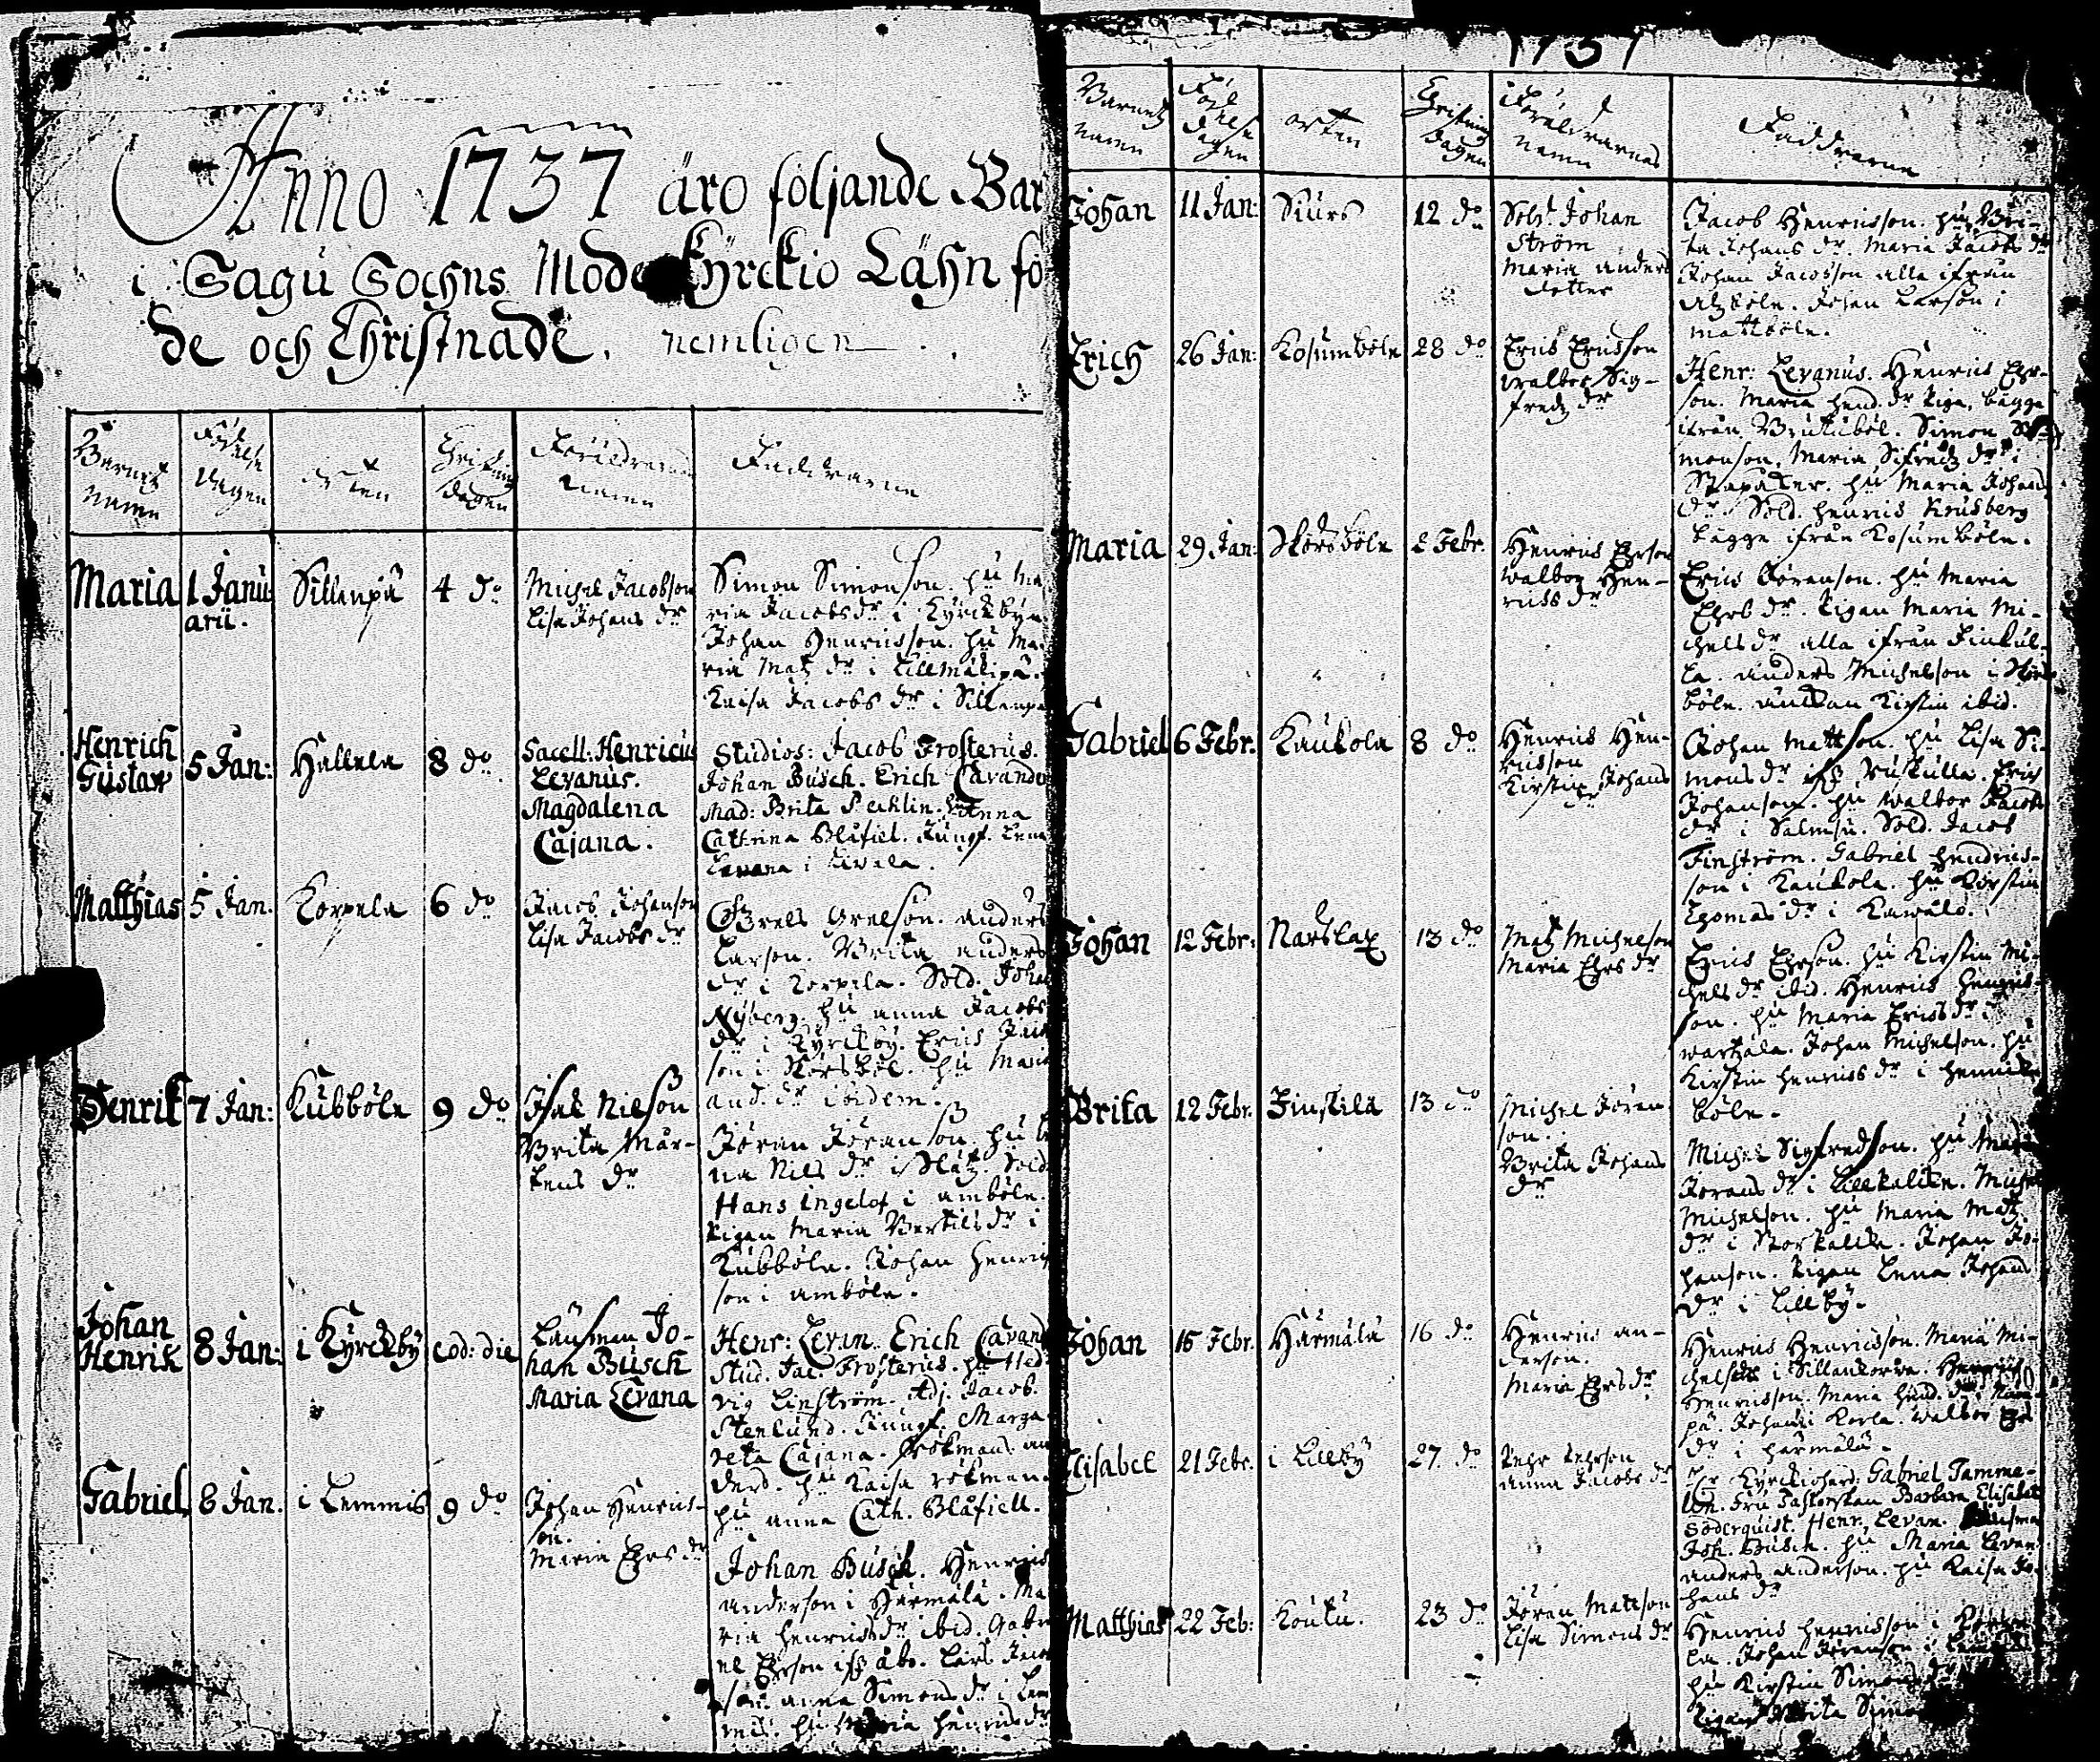 Anno 1737 äro följande Bar
i Sagu Sochns Moder Kyrckio Lähn fö
de och Christnade. nemligen
Barnetz namn
Födelse dagen
orten
Christnings dagen
Föräldrarnas namn
Faddrarne
Maria
1 Janu
arii.
Sillanpä
4 do
Michel Jacobson
Lisa Johans dr
Simon Simonson. hu Ma
ria Jacobs dr i Kyrckbyn
Johan Henricsson. hu Ma
ria Matz dr i Lillmälipä.
Kaisa Jacobs dr i Sillanpä
Henrich
Gustav
5 Jan:
Hallela
8 do
Sacell: Henricus
Levanus.
Magdalena
Cajana.
Studios: Jacob Frosterus.
Johan Busch. Erich Cavande
Mad: Brita Pecklin. hu Anna
Cathrina Blåfiel. Jungf. Lena
Levana i
Matthias
5 Jan.
Korpela
6 do
Jacob Johanson
Lisa Jacobs dr
Grels Grelson. Anders
Larson. Brita Anders
dr i Korpela. Sold. Joha
Nyberg. hu Anna Jacobs
dr i Kyrckby. Erics
son i Norsböl. hu Maria
And. dr ibidem.
Henrik
7 Jan:
Kubböle
9 do
Isak Nilson
Brita Mår-
tens dr
Jöran Jöranson. hu
na Nils dr i Slätz. Sold
Hans Ingelof i Amböle.
Pigan Maria Bertils dr i
Kubböle. Johan Henrics
son i Amböle.
Johan
Henrik
8 Jan:
i Kyrckby
eod: die
Länsman Jo-
han Busch
Maria Levana
Henr: Levan. Erich Cavand
Stud. Jac. Frosterus. hu Hed
vig Linström. Adj. Jacob.
Stenlund. Jungf. Marga
reta Cajana. Rökmans An
ders. hu Kaisa rökman.
hu Anna Cath. Blåfiell.
Gabriel
8 Jan.
i Lemmis
9 do
Johan Henrics-
son.
Maria Ehrs dr
Johan Busch. Henrics
Anderson i Härmälä. Ma
ria Henrics dr ibid. Gabri
el Ehrson ifr Åbo. Lars Jacob
son Anna Simons dr i Lem
mis. hu Maria Henrics dr
1737
Barnetz namn
Födelse dagen
orten
Christnings dagen
Föräldrarnas namn
Faddrarne
Johan
11 Jan:
Skurs
12 do
Sold. Johan
Ström
Maria Anders
dotter
Jacob Henricsson. hu Bri-
ta Johans dr. Maria Jacobs dr
Johan Jacobson alla ifrån
Atzböle. Johan Larson i
Mattböle.
Erich
26 Jan:
Kosumböle
28 do
Erics Ericsson
Walbor Sig-
fredz dr
Henr: Levanus. Henrics Ehr-
son. Maria Hend. dr Piga. bägge
ifrån Brutuböl. Simon Si
monson. Maria Sifredz dr i
Stapåker. hu Maria Johans
dr. Sold. Henrics Krusberg
bägge ifrån Kosumböle.
Maria
29 Jan:
Norsböle
2 Febr.
Henrics Ehrson
Walbor Hen-
rics dr
Erics Jöranson. hu Maria
Ehrs dr. Pigan Maria Mi-
chels dr alla ifrån Finkul-
la. Anders Michelson i Nors
böle. Kirstin ibid.
Gabriel
6 Febr.
Kaukola
8 do
Henrics Hen-
ricsson
Kirstin Johans
dr
Johan Mattson. hu Lisa Si-
mons dr ifr Ruskulla. Erich
Johanson. hu Walbor Jacobs
dr i Salmsu. Sold. Jacob
Finström. Gabriel Hendrics-
son i Kaukola. hu Kirstin
Thomas dr i Kawalo.
Johan
12 Febr:
Narslax
13 do
Matz Michelson
Maria Ehrs dr
Erics Ehrson. hu Kirstin Mi-
chels dr ibid. Henrics Henrics-
son. hu Maria Erics dr i
Wartzala. Johan Michelson. hu
Kirstin Henrics dr i Hennik
böle.
Brita
12 Febr.
Finskilä
13 do
Michel Jöran
son.
Brita Johans
dr
Michel Sigfredson. hu
Jörans dr i Lillkaldle. Michel
Michelson. hu Maria Matz
dr i Storkaldle. Johan Jo-
hanson. Pigan Lena Johans
dr i Lillby.
Johan
15 Febr.
Härmälä
16 do
Henrics An-
derson.
Maria Ehrs dr
Henrics Henricsson. Maria Mi-
chels dr i Sillankorva. Henrics
Henricsson. Maria Hend. dr i
pä. Johan i Korla. Walbor
dr i Härmälä.
Elisabet
21 Febr.
i Lillby
27 do
Pehr Pehrson
Anna Jacobs dr
Hr Kyrckioherd: Gabriel Tamme-
lin. Fru Pastorskan Barbara Elisabet
Söderquist. Henr. Levan. Länsma
Joh. Busch. hu Maria Levan.
Anders Anderson. hu Kaisa Jo-
hans dr
Matthias
22 Feb:
Koutu.
23 do
Jöran Matzson
Lisa Simons dr
Henrics Henricsson i
la. Johan Jöranson i
hu Kirstin Simons dr
Pigan Brita Simo